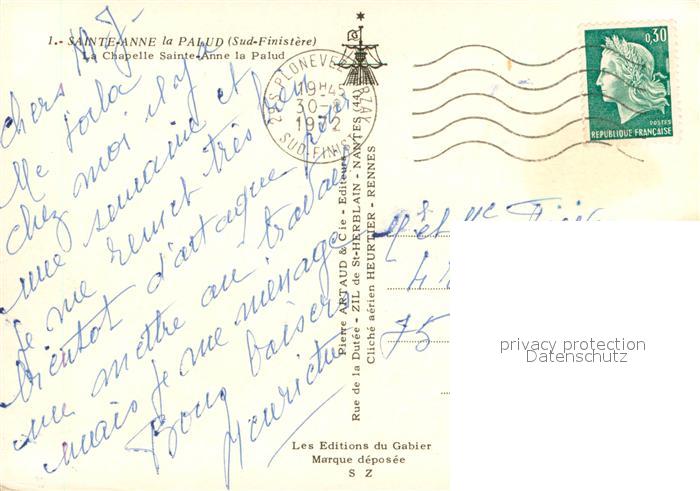 1.- SAINTE-ANNE la PALUD (Sud-Finistère)
La Chapelle Sainte-Anne la Palud
chers M. J.
Me voila
chez moi il y a
une semaine et
je me remet très bien
bientot d'attaque pour
me mettre au travail
mais je me ménage
Bons baisers
Pierre ARTAUD & Cie - Editeurs
Rue de la Dutée - ZIL de St-HERBLAIN - NANTES (44)
Cliché aérien HEURTIER - RENNES
Les Editions du Gabier
Marque déposée
S Z
PLONEVEZ PORZAY
19H45
30-
1972
SUD-FINIST
0,30
POSTES
REPUBLIQUE FRANÇAISE
M et Me
75
privacy protection
Datenschutz